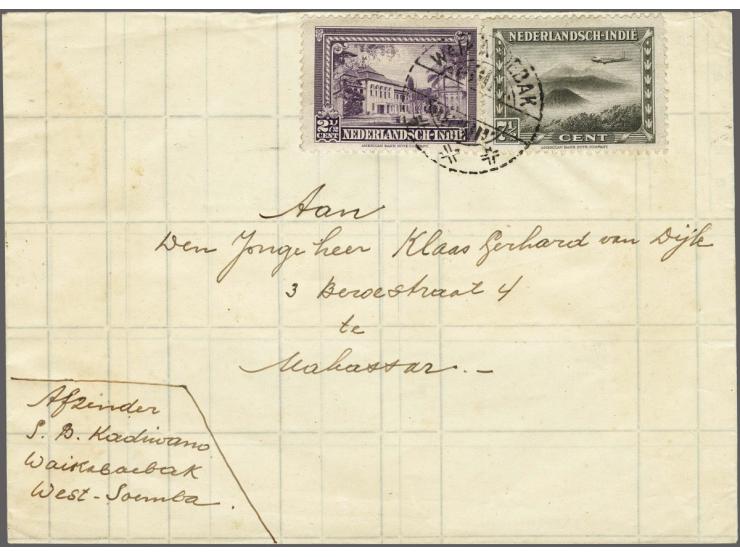 2½ CENT
NEDERLANDSCH-INDIË
AMERICAN BANK NOTE COMPANY
NEDERLANDSCH-INDIË
7½ CENT
AMERICAN BANK NOTE COMPANY
Aan
Den Jongeheer Klaas Gerhard van Dijk
3 Beroestraat 4
te
Makassar.-
Afzender
S. B. Kadiwano
Waikaboebak
West-Soemba.